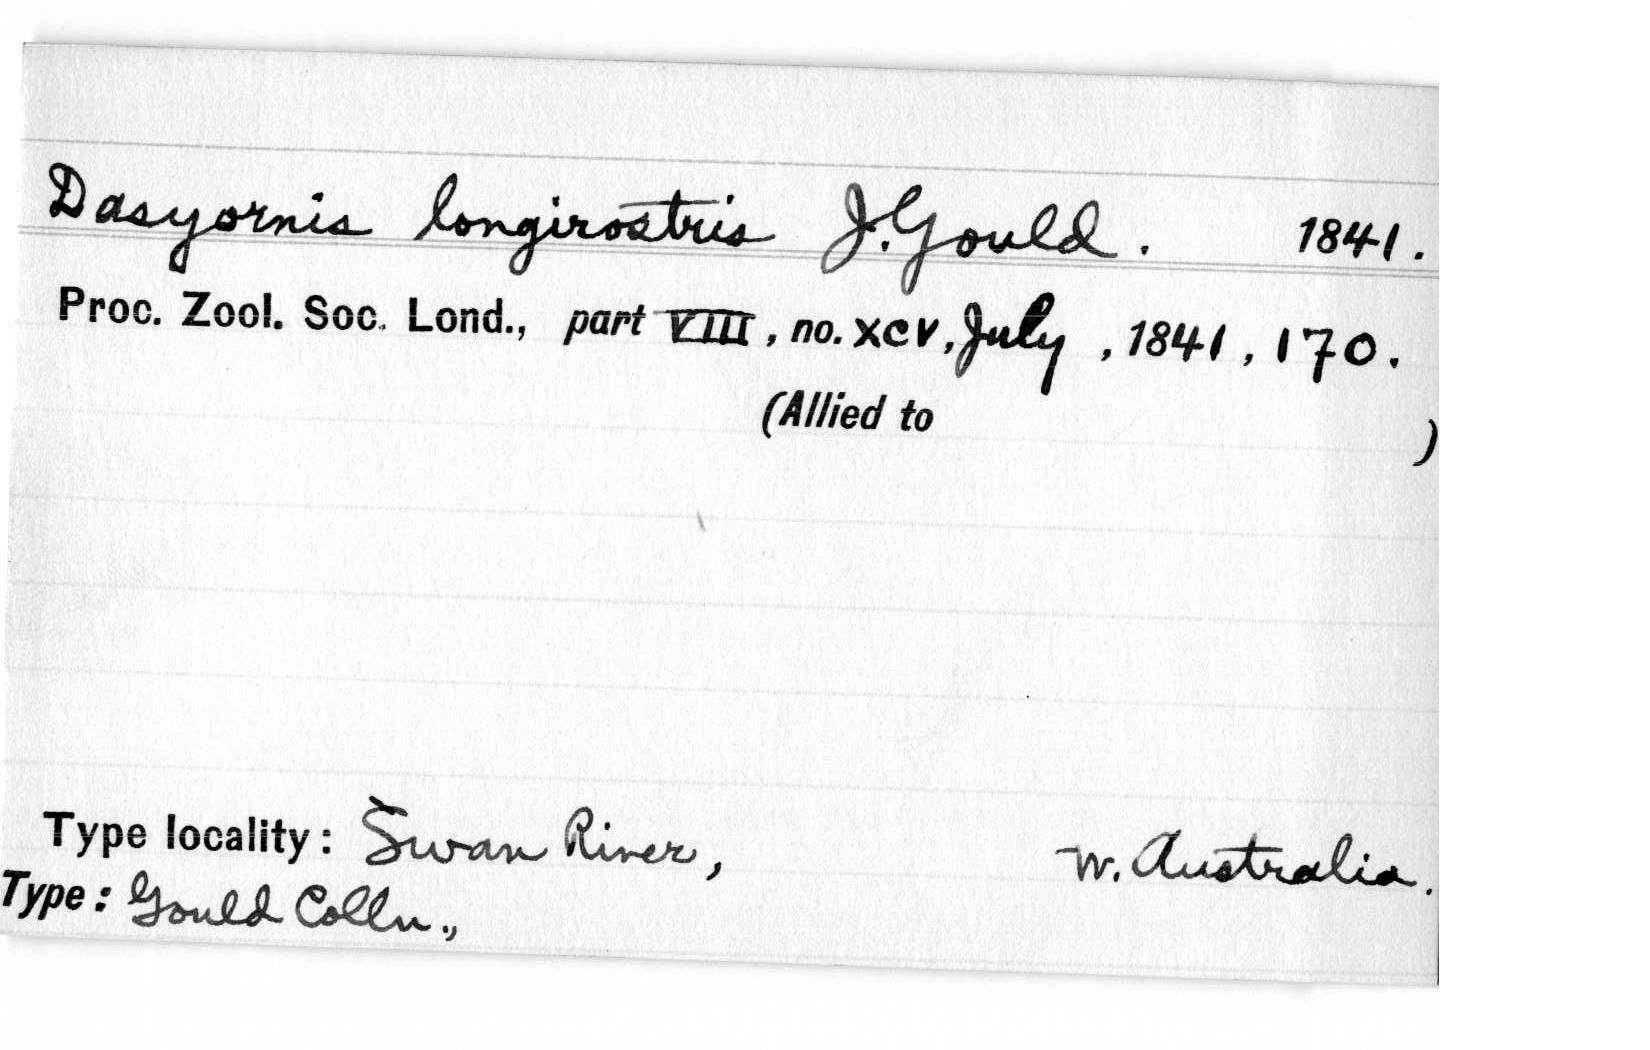 Dasyornis longirostris J. Gould. 1841.
Proc. Zool. Soc. Lond., part VIII, no. xcv, July, 1841, 170.
(Allied to )
Type locality: Swan River, W. Australia.
Type: Gould Colln.,